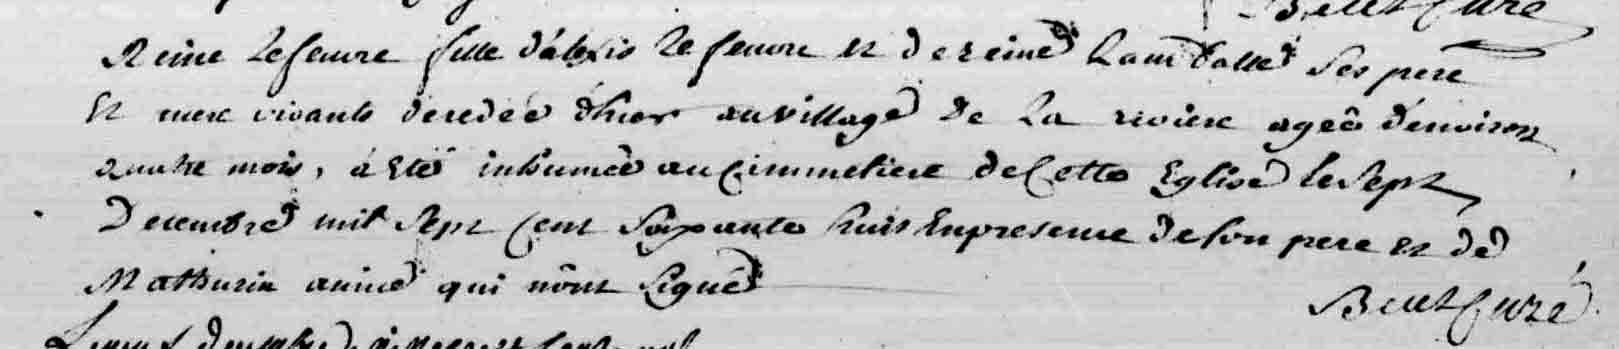 Beut Curé
Reine Lefeuvre fille d'alexis Lefeuvre et de reine Lamballe ses pere
Et mere vivants decedée d'hier au village de La riviere ageé d'environ
quatre mois, à Eté inhumée au Cimmetiere de Cette Eglise le sept
Decembre mil sept Cent Soixante huit En presence de son pere et de
Mathurin qui n'ont signé
Beut Curé